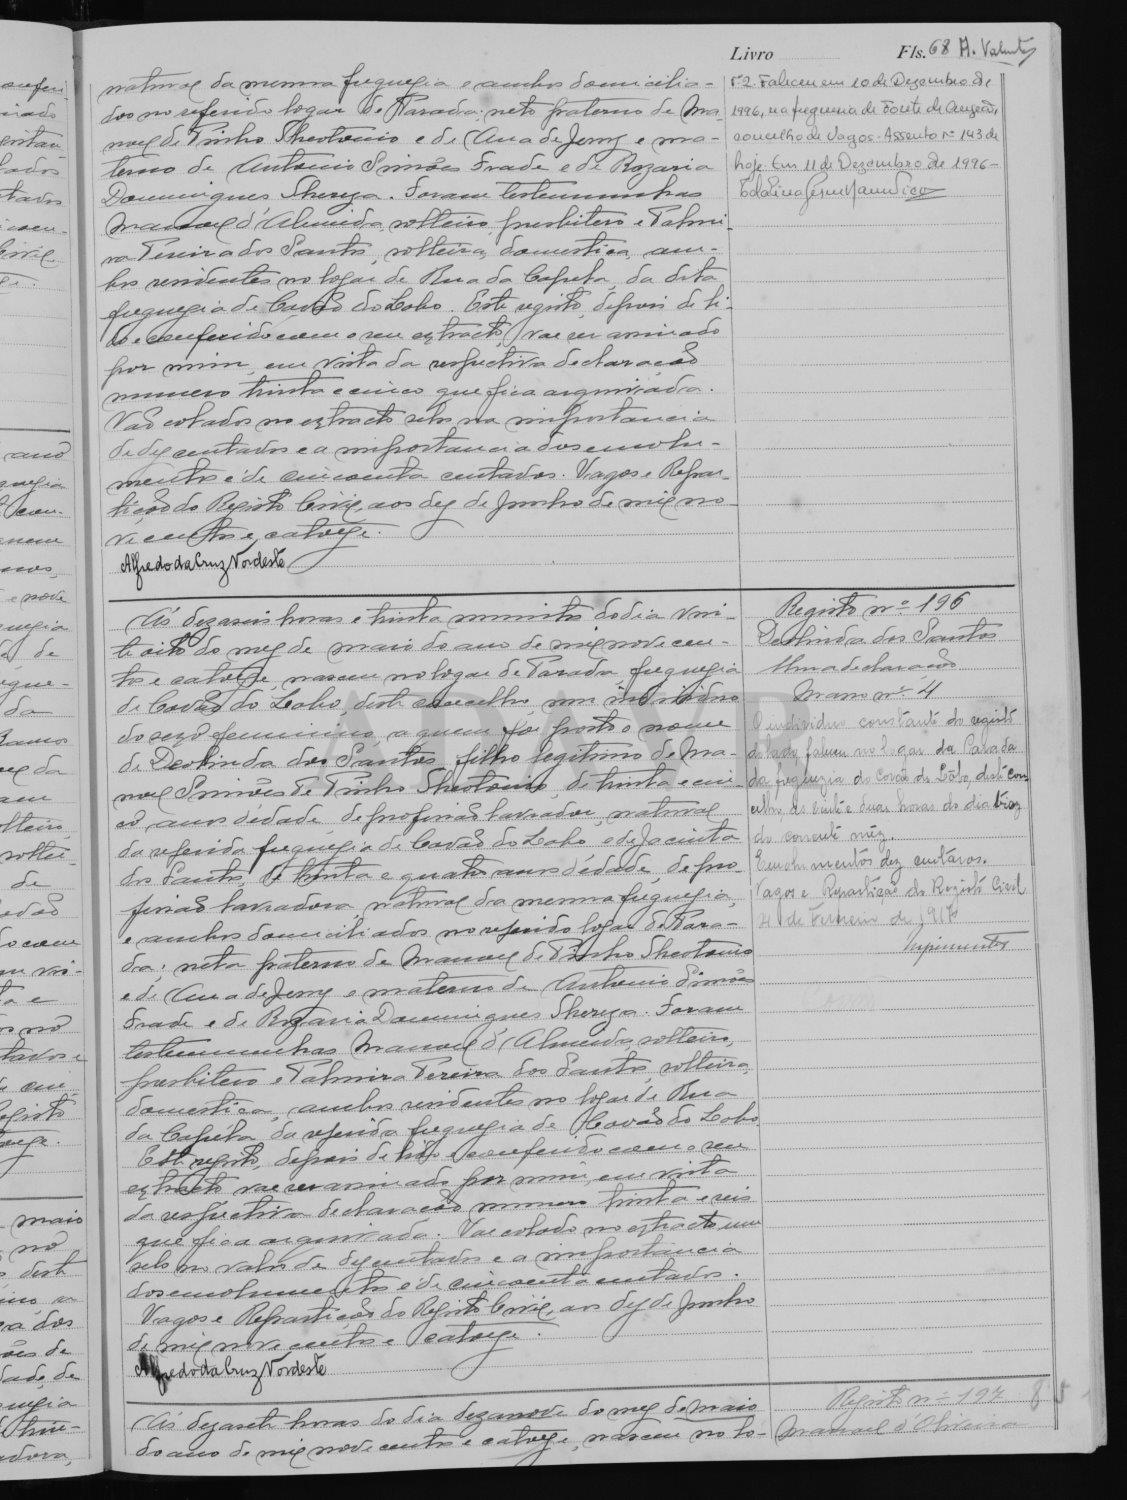 Livro Fls. 68 A. Valente
natural da mesma freguezia e ambos domicilia-
dos no referido logar de Parada: neto paterno de Ma-
noel de Pinho Sheotonio e de Ana de Jemy e ma-
terno de Antonio Simões Frade e de Rozaria
Domingues Thereza. Foram testemunhas
Manoel d'Almeida, solteiro, presbitero e Palmi-
ra Pereira dos Santos, solteira, domestica, am-
bos residentes no logar de Rua da Capela, da dita
freguezia de Covão do Lobo. Este registo, depois de li-
do e conferido com o seu extracto, vae ser assinado
por mim, em vista da respectiva declaração
numero trinta e cinco que fica arquivada.
Vão colados no extracto selos na importancia
de dez centavos e a importancia dos emolu-
mentos é de cincoenta centavos. Vagos e Repar-
tição do Registo Civil, aos dez de Junho de mil no-
vecentos e catorze.
Alfredo da Cruz Nordeste
Nº2. Faleceu em 10 de Dezembro de
1996, na freguesia de Fonte de Angeão,
concelho de Vagos - Assento nº 143 de
hoje. Em 11 de Dezembro de 1996 -
Ás dezaseis horas e trinta minutos do dia vin-
te oito do mez de maio do ano de mil novecen-
tos e catorze, nasceu no logar de Parada, freguezia
de Covão do Lobo, deste concelho um individuo
do sexo femenino, a quem foi posto o nome
de Deolinda dos Santos, filho legitimo de Ma-
noel Simões de Pinho Sheotonio, de trinta e cin-
co anos d'edade, de profissão lavrador, natural
da referida freguezia de Covão do Lobo e de Jacinta
dos Santos, de trinta e quatro anos d'edade, de pro-
fissão lavradora, natural da mesma freguezia,
e ambos domiciliados no referido logar de Para-
da; neta paterno de Manoel de Pinho Sheotonio
e de Ana de Jemy e materno de Antonio Simões
Frade e de Rozaria Domingues Thereza. Foram
testemunhas Manoel d'Almeida, solteiro,
presbitero e Palmira Pereira dos Santos, solteira,
domestica, ambos residentes no logar de Rua
da Capela, da referida freguezia de Covão do Lobo.
Este registo, depois de lido e conferido com o seu
extracto vae ser assinado por mim, em vista
da respectiva declaração numero trinta e seis
que fica arquivada. Vae colado no extracto um
selo no valor de dez centavos e a importancia
dos emolumentos é de cincoenta centavos.
Vagos e Repartição do Registo Civil, aos dez de Junho
de mil novecentos e catorze.
Alfredo da Cruz Nordeste
Registo nº 196
Deolinda dos Santos
Uma declaração
Maço nº 4
O individuo constante do registo
ao lado, faleceu no logar da Parada
da freguezia do Covão do Lobo, deste con-
celho, ás vinte e duas horas do dia trez
do corrente mêz.
Emolumentos dez centavos.
Vagos e Repartição do Registo Civil
4 de Fevereiro de 1917
Ás dezasete horas do dia dezanove do mez de maio
do ano de mil novecentos e catorze, nasceu no lo-
Registo nº 197
Manoel d'Oliveira